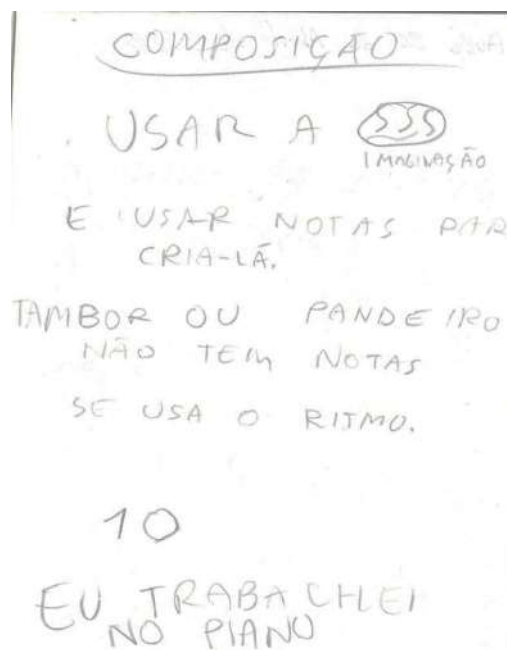 COMPOSIÇÃO
USAR A
IMAGINAÇÃO
E USAR NOTAS PAR
CRIA-LÁ.
TAMBOR OU PANDEIRO
NÃO TEM NOTAS
SE USA O RITMO.
10
EU TRABACHLEI
NO PIANO